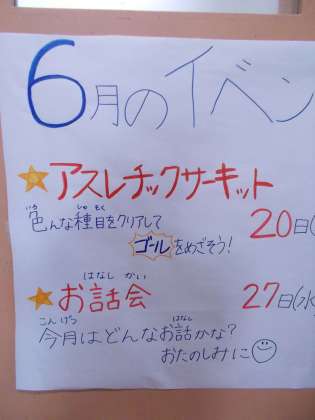 6月のイベン
アスレチックサーキット
色んな種目をクリアして 20日(
ゴールをめざそう!
お話会 27日(水
今月はどんなお話かな?
おたのしみに